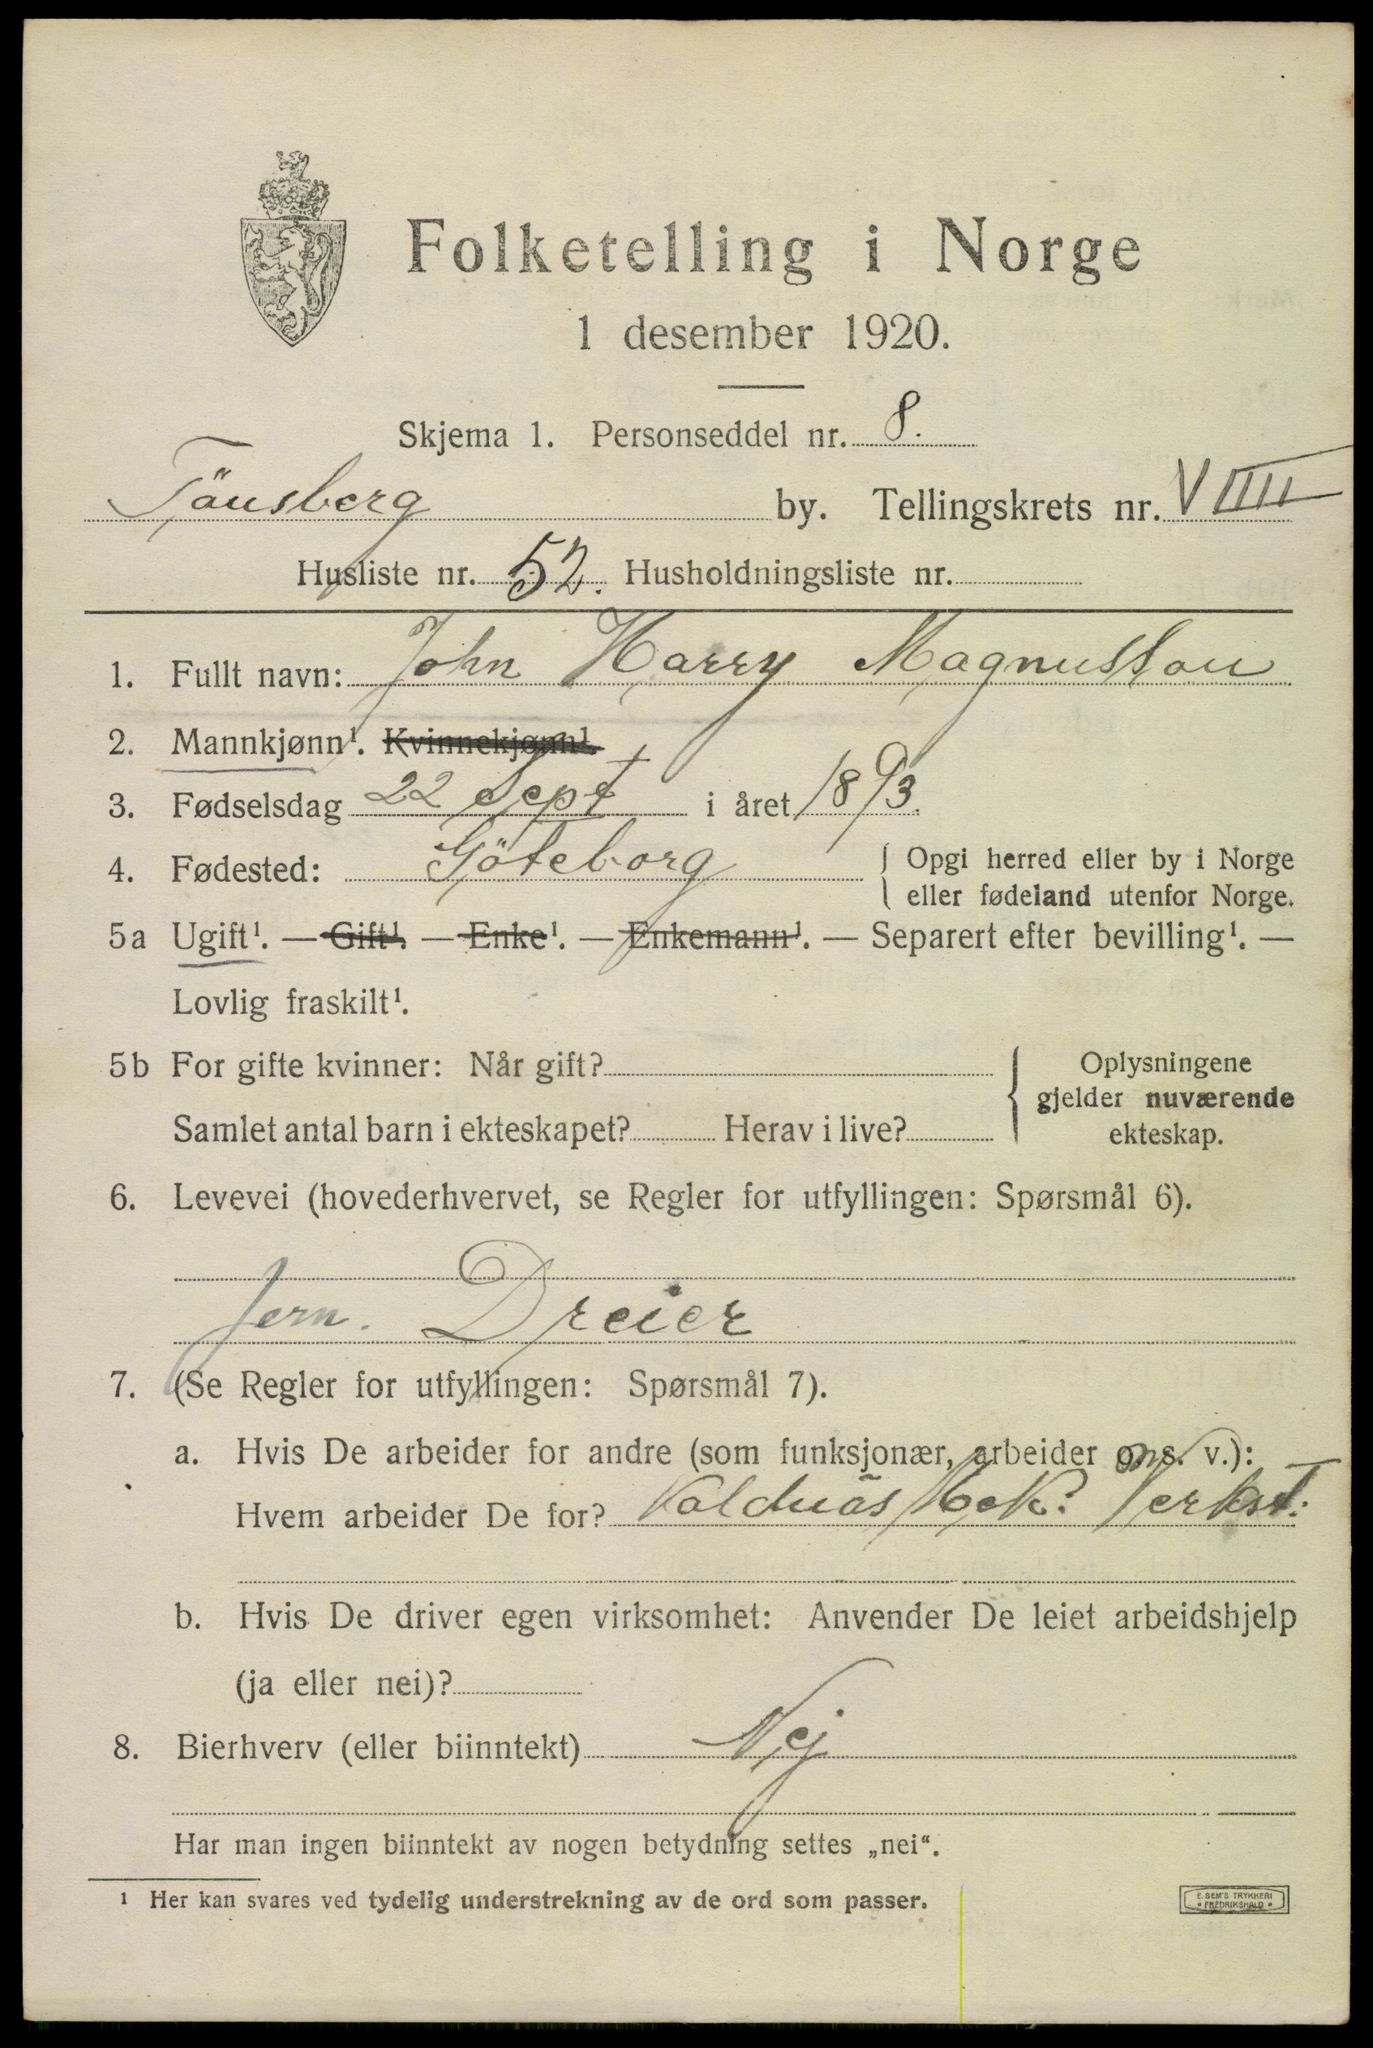 Folketelling i Norge
1 desember 1920.
Skjema 1. Personseddel nr. 8.
Tönsberg by. Tellingskrets nr. VIIII
Husliste nr. 52. Husholdningsliste nr.
1. Fullt navn: John Harry Magnusson
2. Mannkjønn¹. Kvinnekjønn¹.
3. Fødselsdag 22 Sept i året 1893.
4. Fødested: Göteborg { Opgi herred eller by i Norge
eller fødeland utenfor Norge.
5a Ugift¹. — Gift¹. — Enke¹. — Enkemann¹. — Separert efter bevilling¹. —
Lovlig fraskilt¹.
5b For gifte kvinner: Når gift? { Oplysningene
gjelder nuværende
Samlet antal barn i ekteskapet? Herav i live? ekteskap.
6. Levevei (hovederhvervet, se Regler for utfyllingen: Spørsmål 6).
Jern. Dreier
7. (Se Regler for utfyllingen: Spørsmål 7).
a. Hvis De arbeider for andre (som funksjonær, arbeider o. s. v.):
Hvem arbeider De for? Kaldnäs Mek. Verkst.
b. Hvis De driver egen virksomhet: Anvender De leiet arbeidshjelp
(ja eller nei)?
8. Bierhverv (eller biinntekt) Nej
Har man ingen biinntekt av nogen betydning settes „nei“.
¹ Her kan svares ved tydelig understrekning av de ord som passer.
E. SEM'S TRYKKERI
• FREDRIKSHALD •